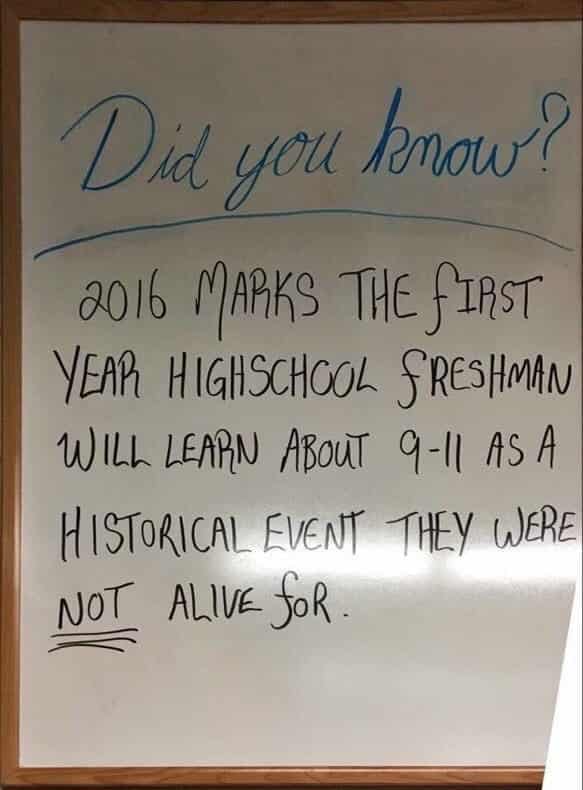 Did you know?
2016 MARKS THE fIRST
YEAR HIGHSCHOOL fRESHMAN
WILL LEARN ABOUT 9-11 AS A
HISTORICAL EVENT THEY WERE
NOT ALIVE foR.